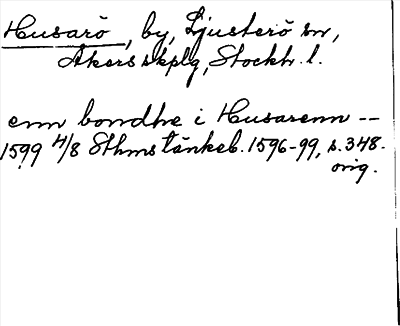 Husarö, by, Ljusterö sn,
Åkers skplg, Stockh. l.
enn bondhe i Husarenn --
1599 4/8 Sthms tänkeb. 1596-99, s. 348.
orig.